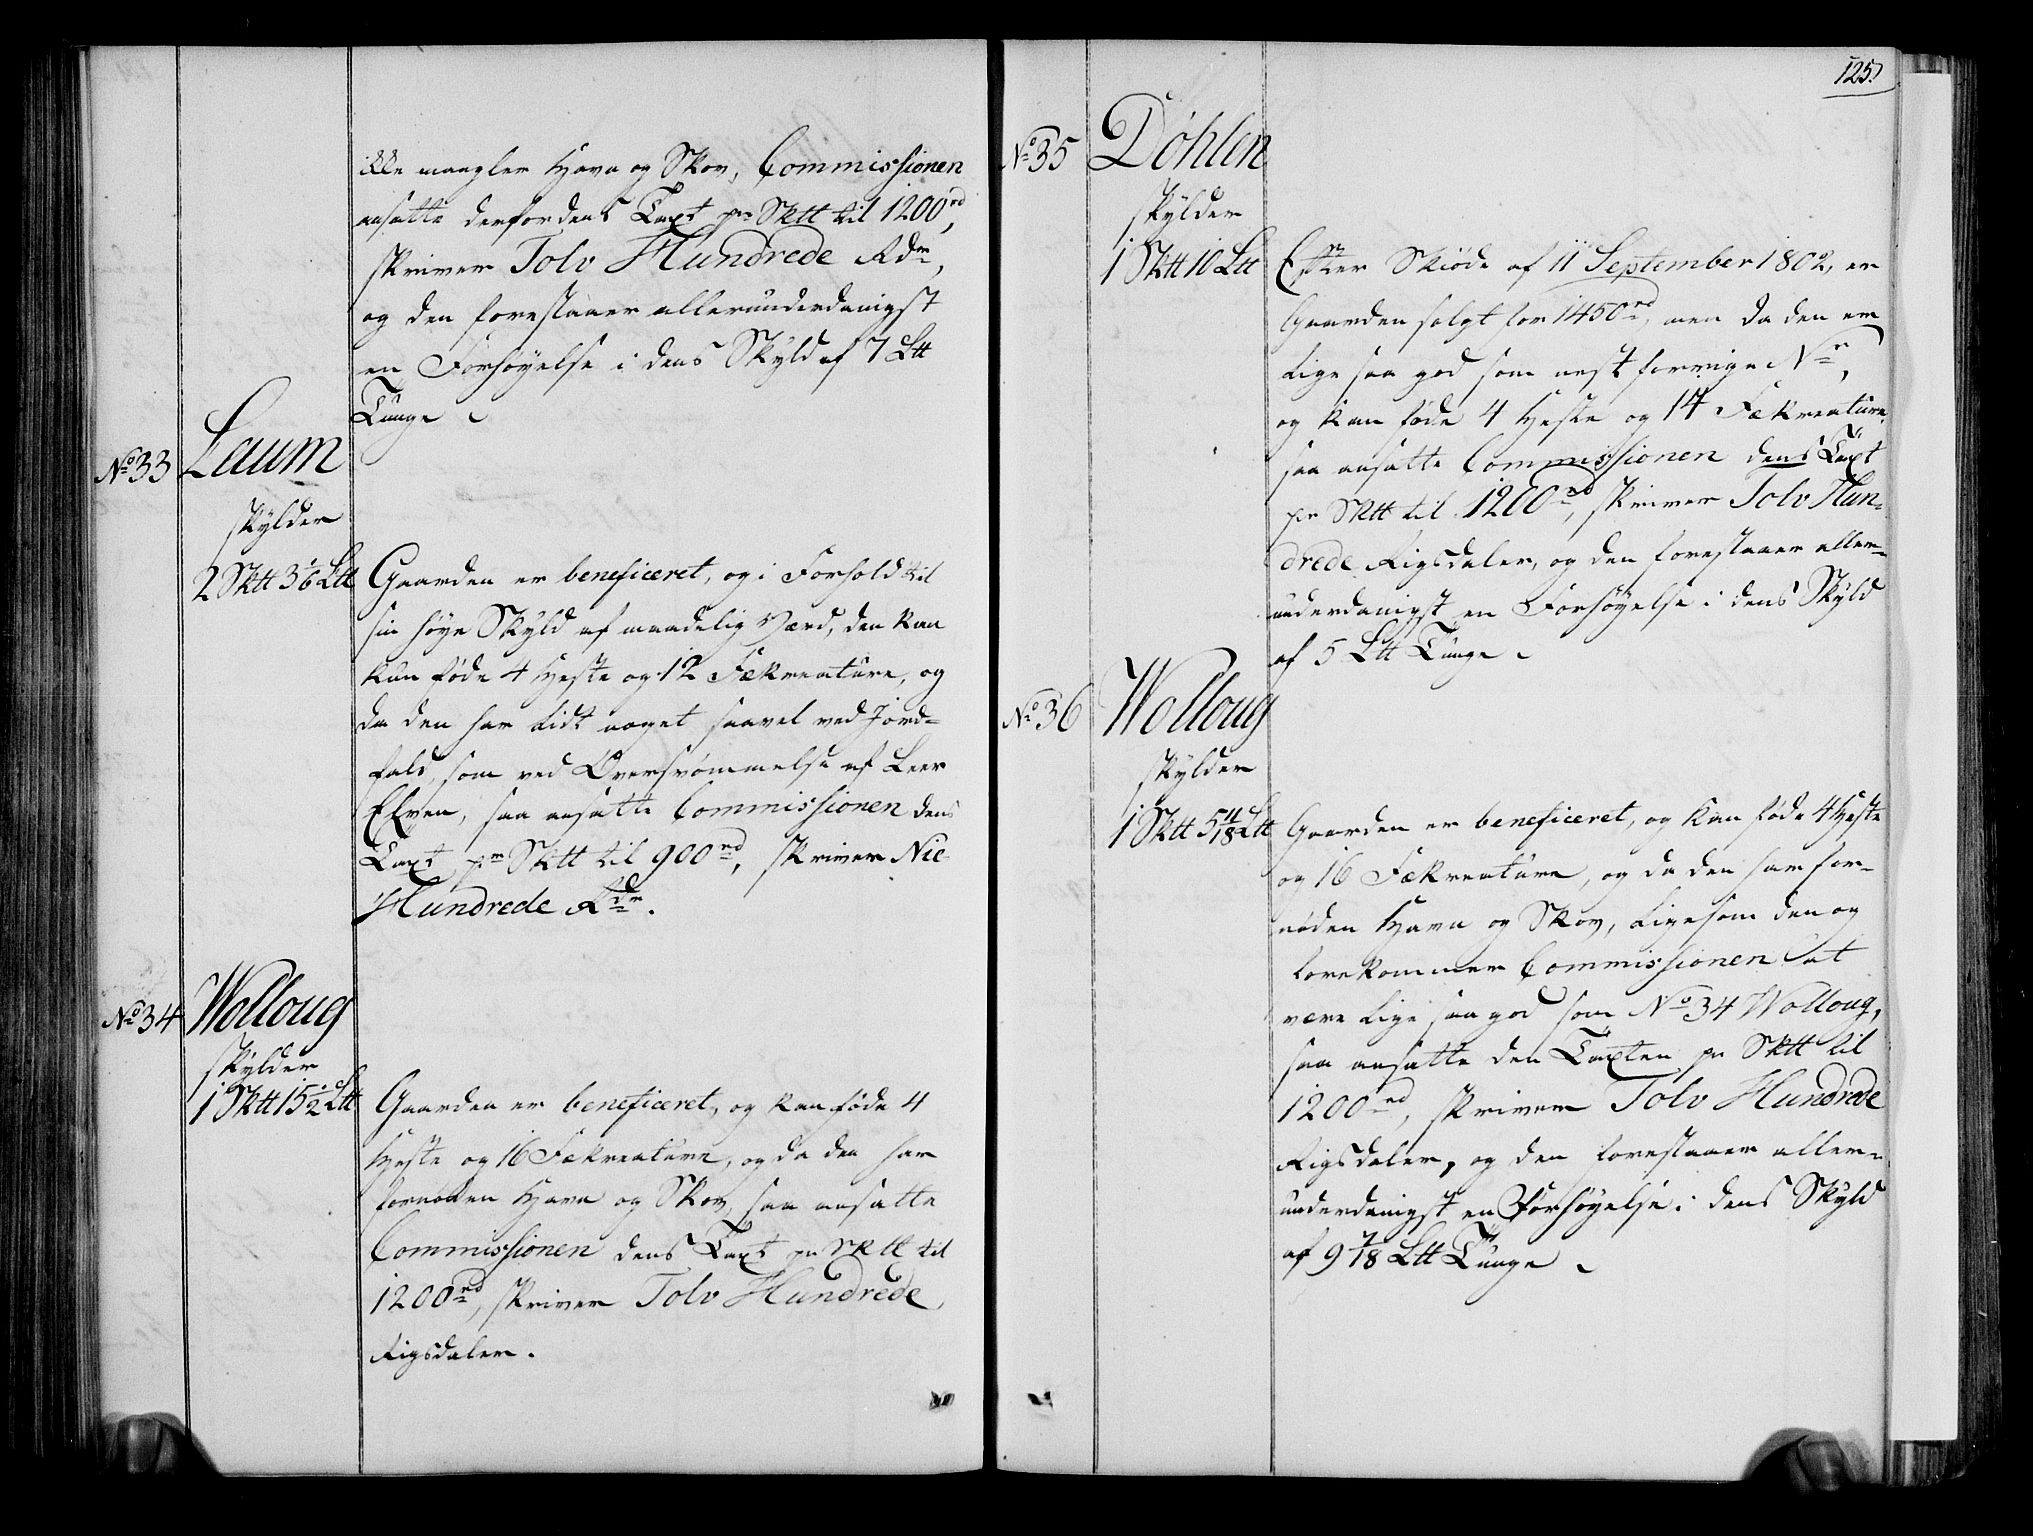 ikke mangler Havn og Skov, Commissionen
ansatte derfor dens Taxt pr Sktt til 1200rd,
skriver Tolv Hundrede Rdr,
og den forestaaer allerunderdanigst
en Forhøyelse i dens Skyld af 7 Ltt
Tunge
No 33 Laum
skylder
2 Sktt 3 1/6 Ltt
Gaarden er beneficeret, og i Forhold til
sin høye Skyld af maadelig Værd, den kan
kun føde 4 Heste og 12 Fækreature, og
da den har lidt noget saavel ved Jord-
fald, som ved Oversvømmelse af Leer
Elven, saa ansatte Commissionen dens
Taxt pr Sktt til 900rd, skriver Nie
Hundrede Rdr.
No 34 Wolloug
skylder
1 Sktt 15 1/2 Ltt
Gaarden er beneficeret, og kan føde 4
Heste og 16 Fækreature, og da den har
fornøden Havn og Skov, saa ansatte
Commissionen dens Taxt pr Sktt til
1200rd, skriver Tolv Hundrede
Rigsdaler.
125.
No 35 Döhlen
skylder
1 Sktt 10 Ltt
Efter Skiøde af 11 September 1802, er
Gaarden solgt for 1450rd, men da den er
lige saa god som nest forrige Nr,
og kan føde 4 Heste og 14 Fækreature
saa ansatte Commissionen dens Taxt
pr Sktt til 1200rd, skriver Tolv Hun-
drede Rigsdaler, og den forestaaer aller-
underdanigst en Forhøyelse i dens Skyld
af 5 Ltt Tunge
No 36 Wolloug
skylder
1 Sktt 5 11/18 Ltt
Gaarden er beneficeret, og kan føde 4 Heste
og 16 Fækreature, og da den har for-
nøden Havn og Skov, ligesom den og
forekommer Commissionen at
være lige saa god som No 34 Wolloug,
saa ansatte den Taxten pr Sktt til
1200rd, skriver Tolv Hundrede
Rigsdaler, og den forestaaer aller-
underdanigst en Forhøyelse i dens Skyld
af 9 7/18 Ltt Tunge